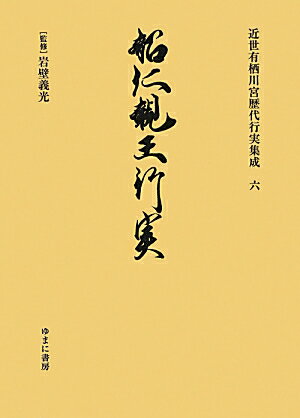 近世有栖川宮歴代行実集成 六
韶仁親王行実
[監修] 岩壁義光
ゆまに書房